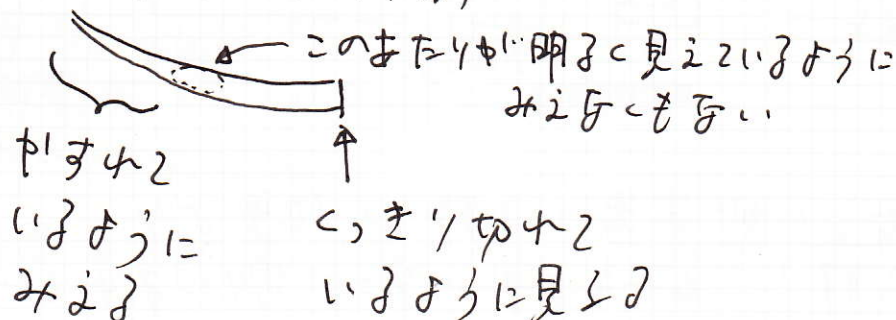 このあたりが明るく見えているように
みえなくもない
かすれて
いるように
みえる
くっきり切れて
いるように見える